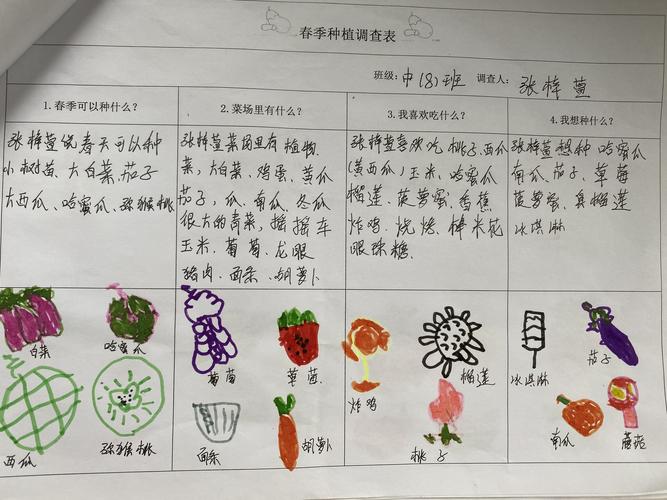 春季种植调查表
班级: 中(8)班 调查人: 张梓萱
1.春季可以种什么?
张梓萱说春天可以种
小树苗、大白菜、茄子
大西瓜、哈蜜瓜、弥猴桃
2.菜场里有什么?
张梓萱菜园里有植物
菜,大白菜、鸡蛋、黄瓜
茄子,瓜、南瓜、冬瓜
很大的青菜,摇摇车
玉米、葡萄、龙眼
猪肉、面条、胡萝卜
3.我喜欢吃什么?
张梓萱喜欢吃桃子、西瓜
(黄西瓜)玉米、哈蜜瓜
榴莲、菠萝蜜、香蕉
炸鸡、烧烤、棒米花
眼珠糖、
4.我想种什么?
张梓萱想种哈蜜瓜
南瓜、茄子、草莓
菠萝蜜、臭榴莲
冰淇淋
白菜
哈蜜瓜
西瓜
弥猴桃
葡萄
草莓
面条
胡萝卜
炸鸡
榴莲
桃子
冰淇淋
茄子
南瓜
蘑菇